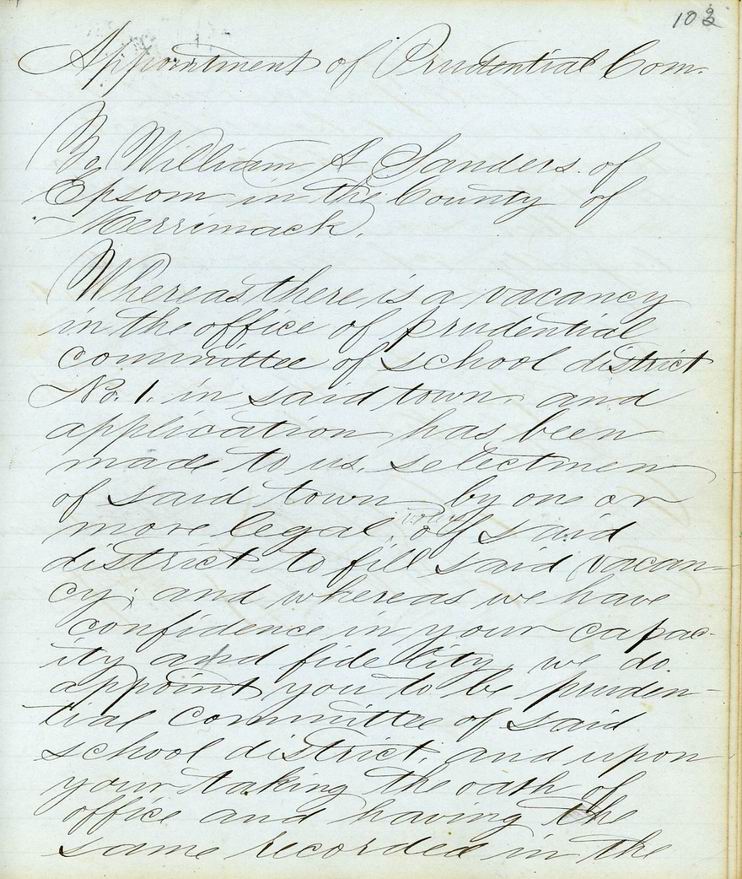 103
Appointment of Prudential Com.
To William A Sanders. of
Epsom in the County of
Merrimack.
Whereas there is a vacancy
in the office of prudential
committee of school district
No. 1. in said town and
application has been
made to us, selectmen
of said town by one or
more legal voters of said
district to fill said vacan-
cy; and whereas we have
confidence in your capac-
ity and fidelity, we do
appoint you to be pruden-
tial committee of said
school district, and upon
your taking the oath of
office and having the
same recorded in the